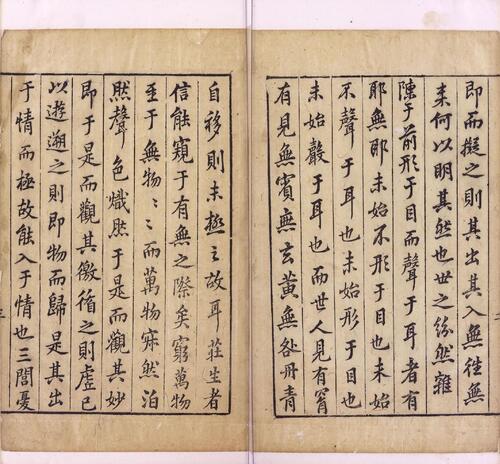 即而擬之則其出其入無徃無
来何以明其然也世之紛然雜
陳于前形于目而聲于耳者有
耶無耶未始不形于目也未始
不聲于耳也未始形于目也
未始聲于耳也而世人見有窅
有見無賓無玄黄無咎丹青
自移則未極之故耳莊生者
信能窺于有無之際矣窮萬物
至于無物〻而萬物寂然泊
然聲色熾然于是而觀其妙
即于是而觀其徼循之則虛已
以遊遡之則即物而歸是其出
于情而極故能入于情也三閭憂